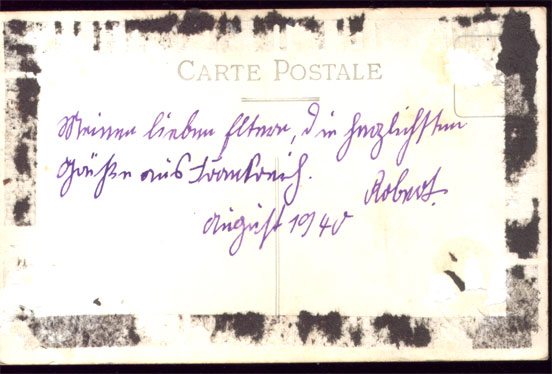 CARTE POSTALE
Meinen lieben Eltern, die herzlichsten
Grüße aus Frankreich.
Robert.
August 1940